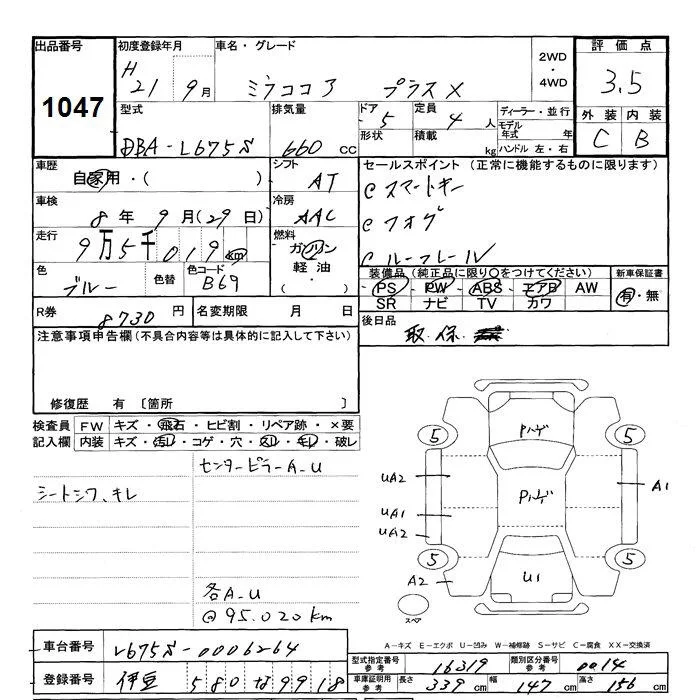 出品番号 初度登録年月 車名・グレード 2WD・4WD 評価点
1047 H21 9月 ミラココア プラスX 3.5
型式 排気量 ドア 定員 ディーラー・並行 外装 内装
DBA-L675S 660cc 5 4人 モデル年式 年 C B
形状 積載 kg ハンドル 左・右
車歴 シフト セールスポイント (正常に機能するものに限ります)
自家用・( ) AT スマートキー
車検 冷房 フォグ
8年9月(29日) AAC ルーフレール
走行 燃料 装備品 (純正品に限り○をつけてください) 新車保証書
9万5千019km ガソリン PS・PW・ABS・エアB・AW 有・無
色 色替 色コード 軽油・( ) SR ナビ TV カワ
ブルー B69
R券 8730円 名変期限 月 日 後日品
取.保.
注意事項申告欄(不具合内容等は具体的に記入して下さい)
修復歴 有 〔箇所 〕
検査員 FW キズ・飛石・ヒビ割・リペア跡・×要
記入欄 内装 キズ・汚レ・コゲ・穴・スレ・キレ・破レ
センターピラーA-U
シートシワ、キレ
各A-U
@95.020km
Pハゲ
5 5
UA2 A1
Pハゲ
UA1
UA2
5 5
A2 U1
スペア
A-キズ E-エクボ U-凹み W-補修跡 S-サビ C-腐食 XX-交換済
車台番号 L675S-0006264
型式指定番号 参考 16319 類別区分番号 参考 0014
登録番号 伊豆 580 な 9918
車庫証明用 参考 長さ 339cm 幅 147cm 高さ 156cm